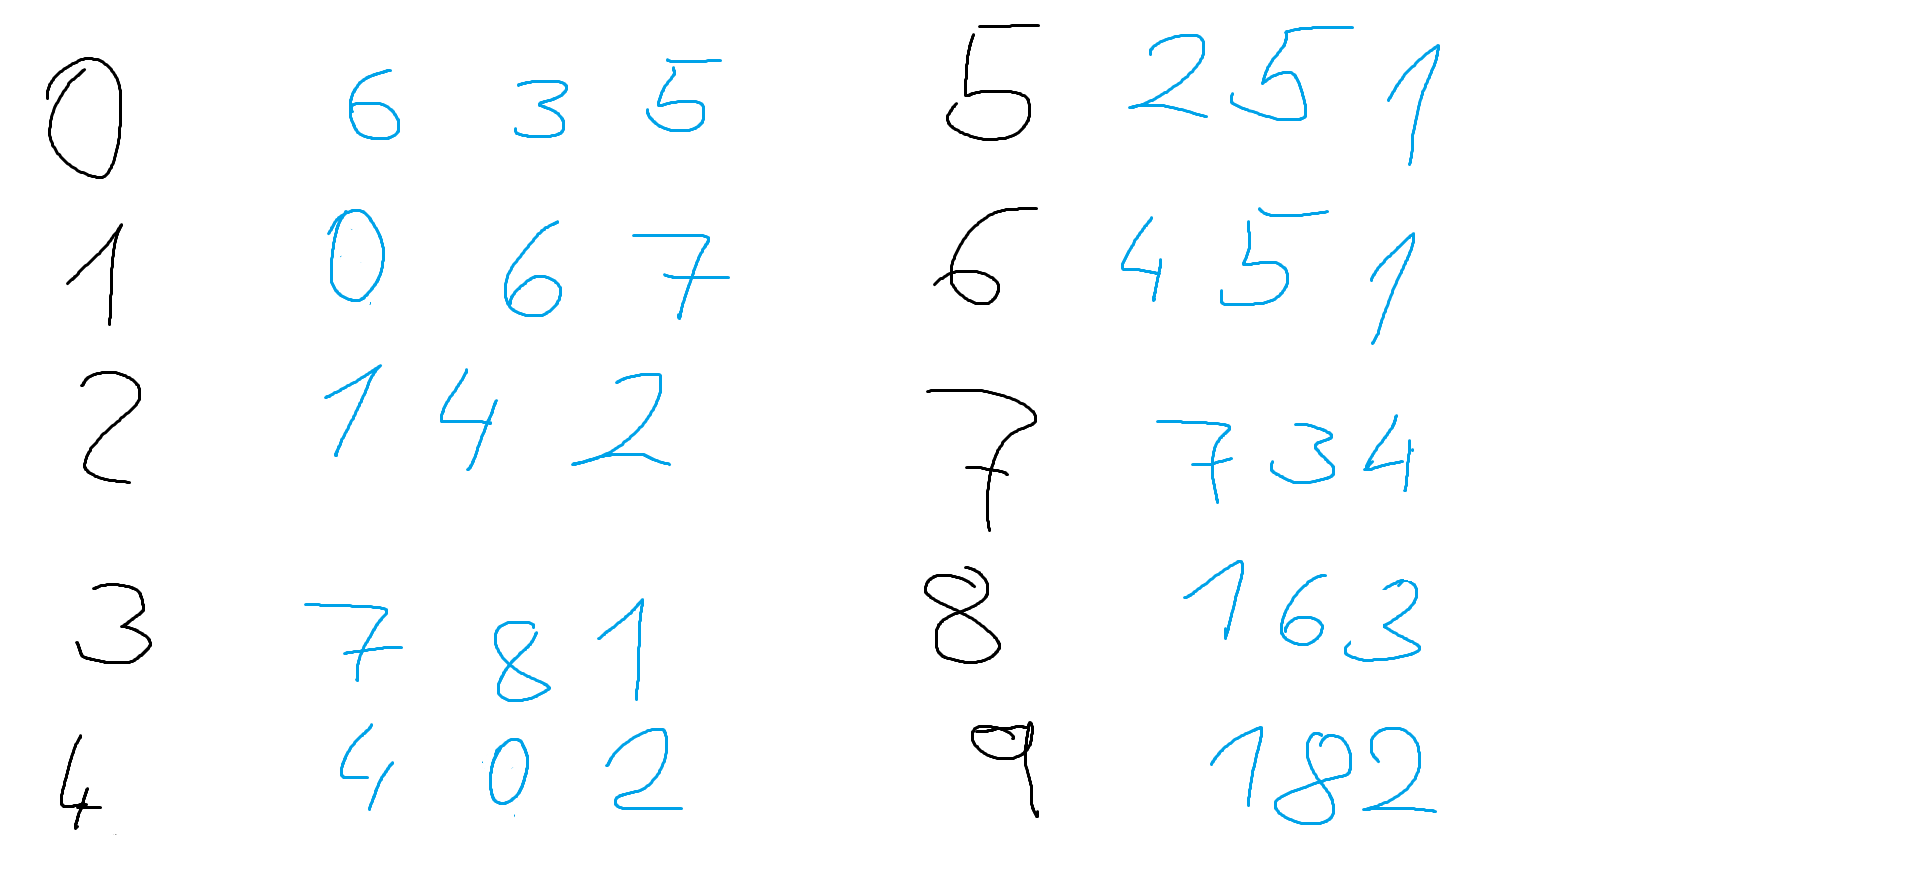 0 6 3 5
1 0 6 7
2 1 4 2
3 7 8 1
4 4 0 2
5 2 5 1
6 4 5 1
7 7 3 4
8 1 6 3
9 1 8 2